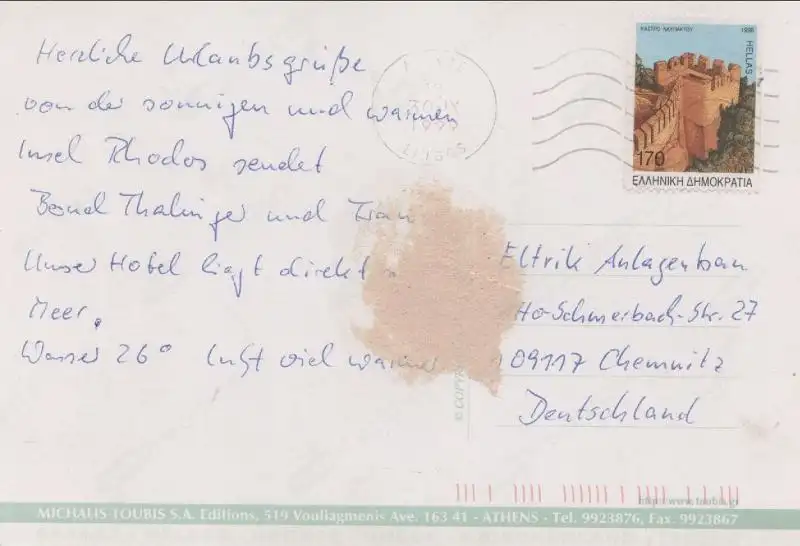 Herzliche Urlaubsgrüße
von der sonnigen und warmen
Insel Rhodos sendet
Bernd Thalinger und Frau
Unser Hotel liegt direkt
Meer.
Wasser 26° Luft viel wärmer
ΚΑΣΤΡΟ ΝΑΥΠΑΚΤΟΥ 1998
HELLAS
170
ΕΛΛΗΝΙΚΗ ΔΗΜΟΚΡΑΤΙΑ
Eltrik Anlagenbau
Schwerbach-Str. 27
09117 Chemnitz
Deutschland
http://www.toubis.gr
MICHALIS TOUBIS S.A. Editions, 519 Vouliagmenis Ave. 163 41 - ATHENS - Tel. 9923876, Fax. 9923867